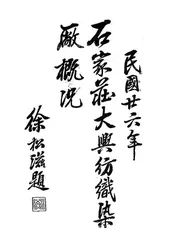 民國廿六年
石家莊大興紡織染
廠概況
徐松滋題